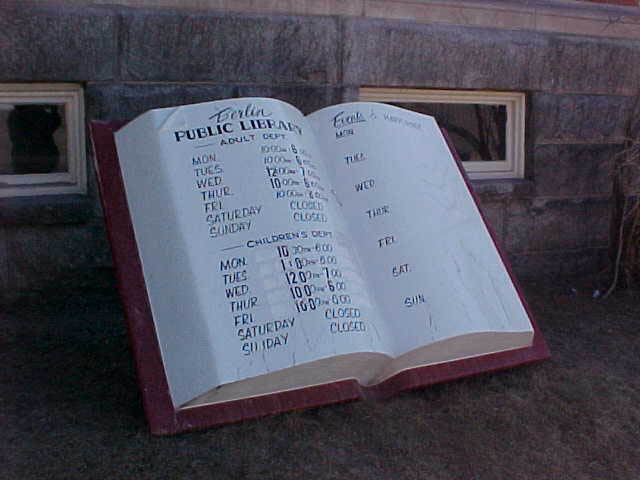 Berlin
PUBLIC LIBRARY
ADULT DEPT.
MON. 10:00AM-6:00
TUES. 10:00AM-6:00
WED. 12:00PM-7:00
THUR. 10:00AM-6:00
FRI. 10:00AM-6:00
SATURDAY CLOSED
SUNDAY CLOSED
CHILDREN'S DEPT.
MON. 10:00AM-6:00
TUES
WED. 12:00PM-7:00
THUR. 10:00AM-6:00
FRI. 10:00AM-6:00
SATURDAY CLOSED
SUNDAY CLOSED
Events &
MON.
TUES.
WED.
THUR.
FRI.
SAT.
SUN.